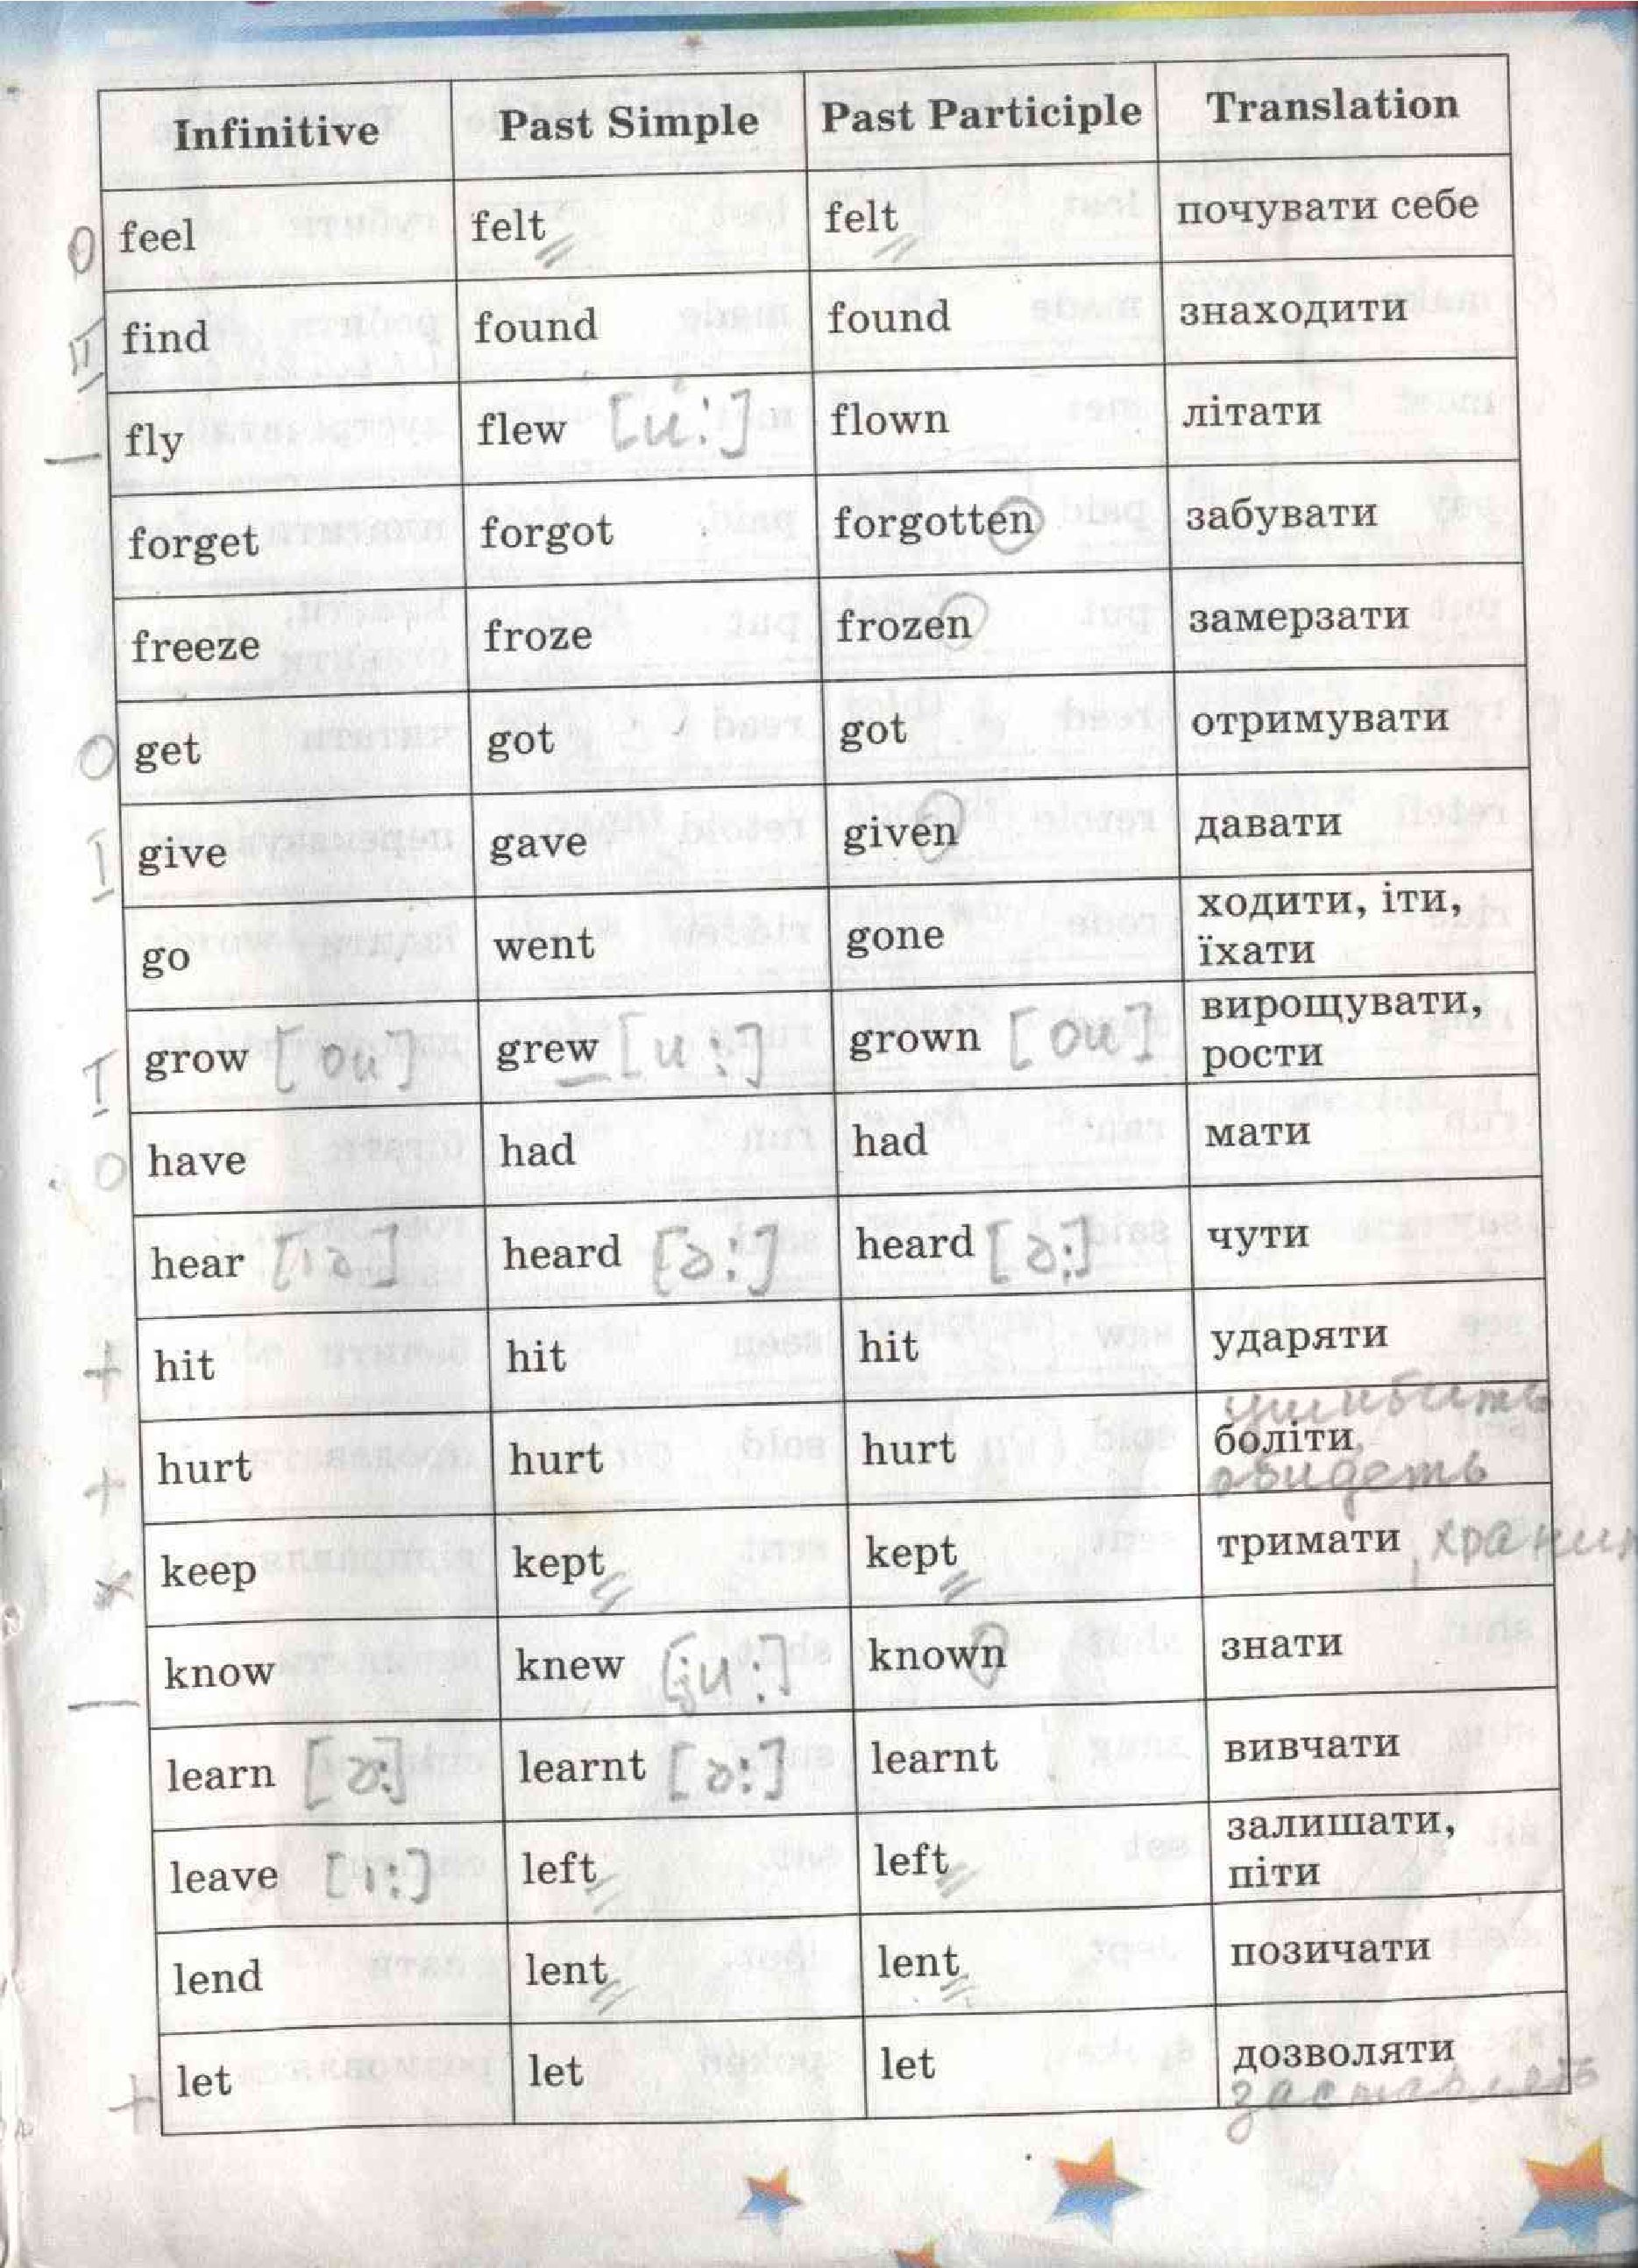 Infinitive Past Simple Past Participle Translation
feel felt felt почувати себе
find found found знаходити
fly flew [u:] flown літати
forget forgot forgotten забувати
freeze froze frozen замерзати
get got got отримувати
give gave given давати
ходити, іти,
go went gone їхати
вирощувати,
grow [ou] grew [u:] grown [ou] рости
have had had мати
hear [ıə] heard [ə:] heard [ə:] чути
hit hit hit ударяти
ушибить
hurt hurt hurt боліти,
обидеть
keep kept kept тримати, хранит
know knew [ju:] known знати
learn [ə:] learnt [ə:] learnt вивчати
залишати,
leave [ı:] left left піти
lend lent lent позичати
let let let дозволяти
заставлять